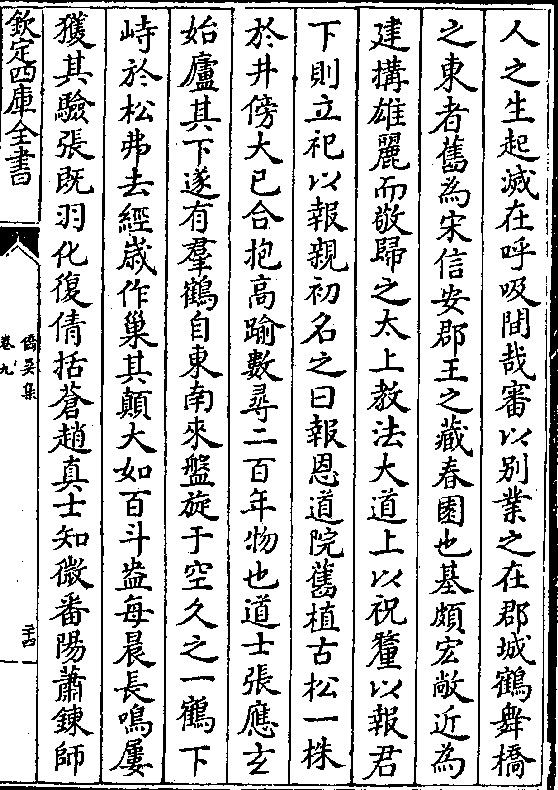 人之生起滅在呼吸間哉審以別業之在郡城鶴舞橋
之東者舊為宋信安郡王之藏春園也基頗宏敞近為
建搆雄麗而敬歸之太上教法大道上以祝釐以報君
下則立祀以報親初名之曰報恩道院舊植古松一株
於井傍大已合抱高踰數尋二百年物也道士張應玄
始廬其下遂有羣鶴自東南來盤旋于空久之一鶴下
峙於松弗去經歲作巢其顛大如百斗盎每晨長鳴屢
獲其驗張既羽化復倩括蒼趙真士知微番陽蕭鍊師
欽定四庫全書
僑吳集
卷九
二十四